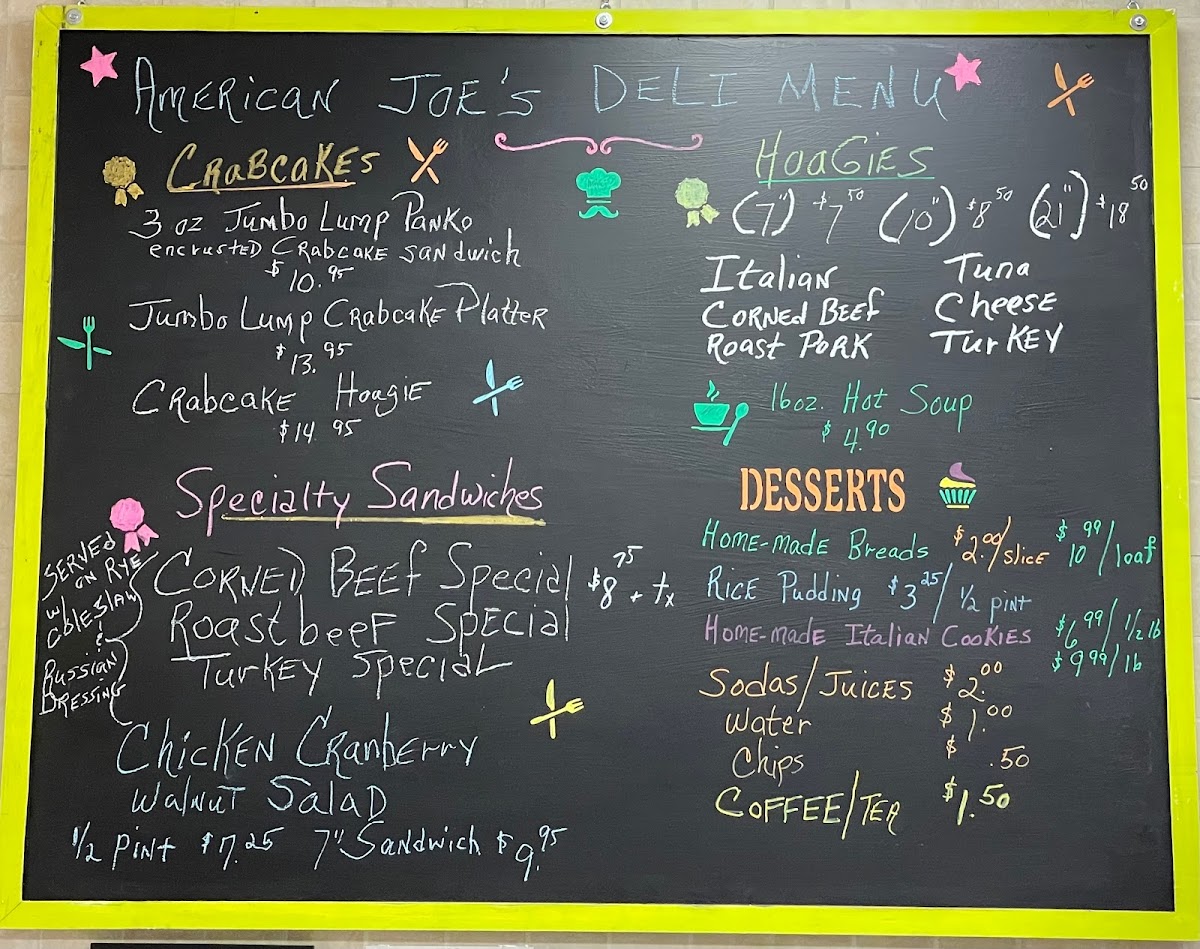 AMERICAN JOE'S DELI MENU
CRABCAKES
3 oz Jumbo Lump Panko
encrusted Crabcake Sandwich
$10.95
Jumbo Lump Crabcake Platter
$13.95
Crabcake Hoagie
$14 95
Specialty Sandwiches
SERVED
ON RYE
w/
coleslaw
&
Russian
Dressing
Corned Beef Special $8 75 + tx
Roast beef Special
Turkey Special
Chicken Cranberry
Walnut Salad
1/2 pint $7.25 7" Sandwich $9.95
HOAGIES
(7") $7 50 (10") $8 50 (21") $18 50
Italian Tuna
Corned Beef Cheese
Roast Pork Turkey
16oz. Hot Soup
$4.90
DESSERTS
Home-made Breads $2.00/slice $10 99/loaf
Rice Pudding $3 25/ 1/2 pint
Home-made Italian Cookies $6 99/ 1/2 lb
$9 99/lb
Sodas/Juices $2.00
Water $1.00
Chips $ .50
Coffee/Tea $1.50